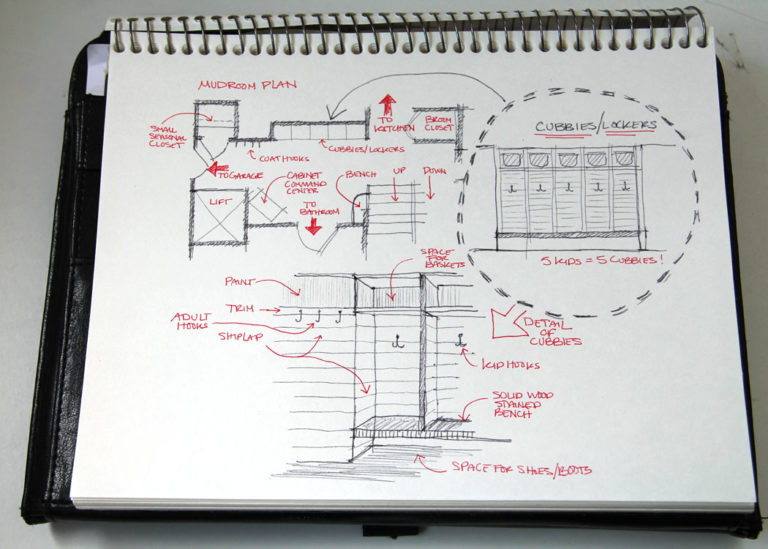 MUDROOM PLAN
SMALL
SEASONAL
CLOSET
COAT HOOKS
CUBBIES/LOCKERS
TO
KITCHEN
BROOM
CLOSET
TO GARAGE
LIFT
CABINET
COMMAND
CENTER
TO
BATHROOM
BENCH
UP
DOWN
CUBBIES/LOCKERS
5 KIDS = 5 CUBBIES!
SPACE
FOR
BASKETS
PAINT
TRIM
ADULT
HOOKS
SHIPLAP
DETAIL
OF
CUBBIES
KID HOOKS
SOLID WOOD
STAINED
BENCH
SPACE FOR SHOES/BOOTS